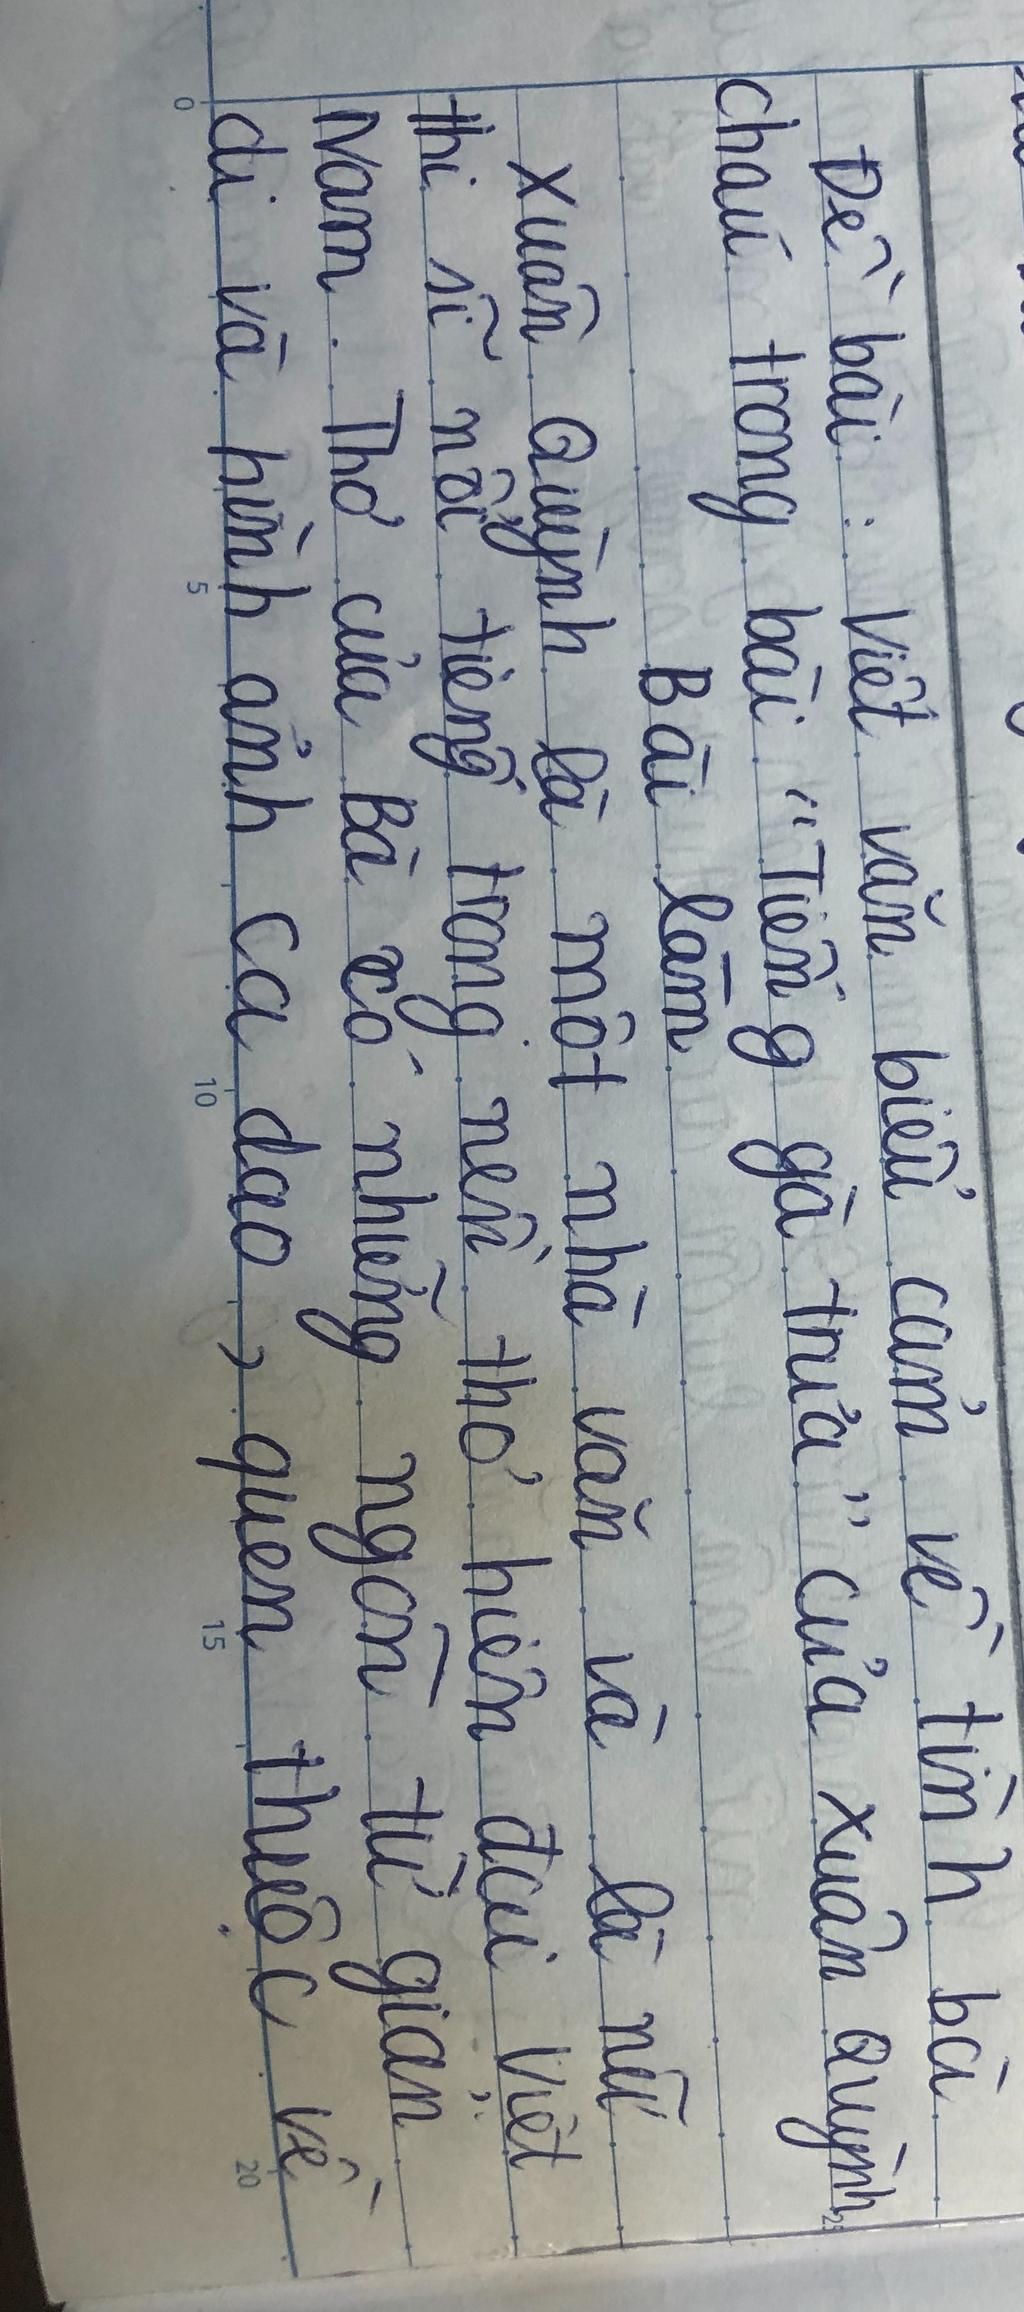 Đề bài: Viết văn biểu cảm về tình bà
cháu trong bài "Tiếng gà trưa" của Xuân Quỳnh
Bài làm
Xuân Quỳnh là một nhà văn và là nữ
thi sĩ nổi tiếng trong nền thơ hiện đại Việt
Nam. Thơ của Bà có những ngôn từ giản
di và hình ảnh ca dao, quen thuộc về
0 5 10 15 20
25